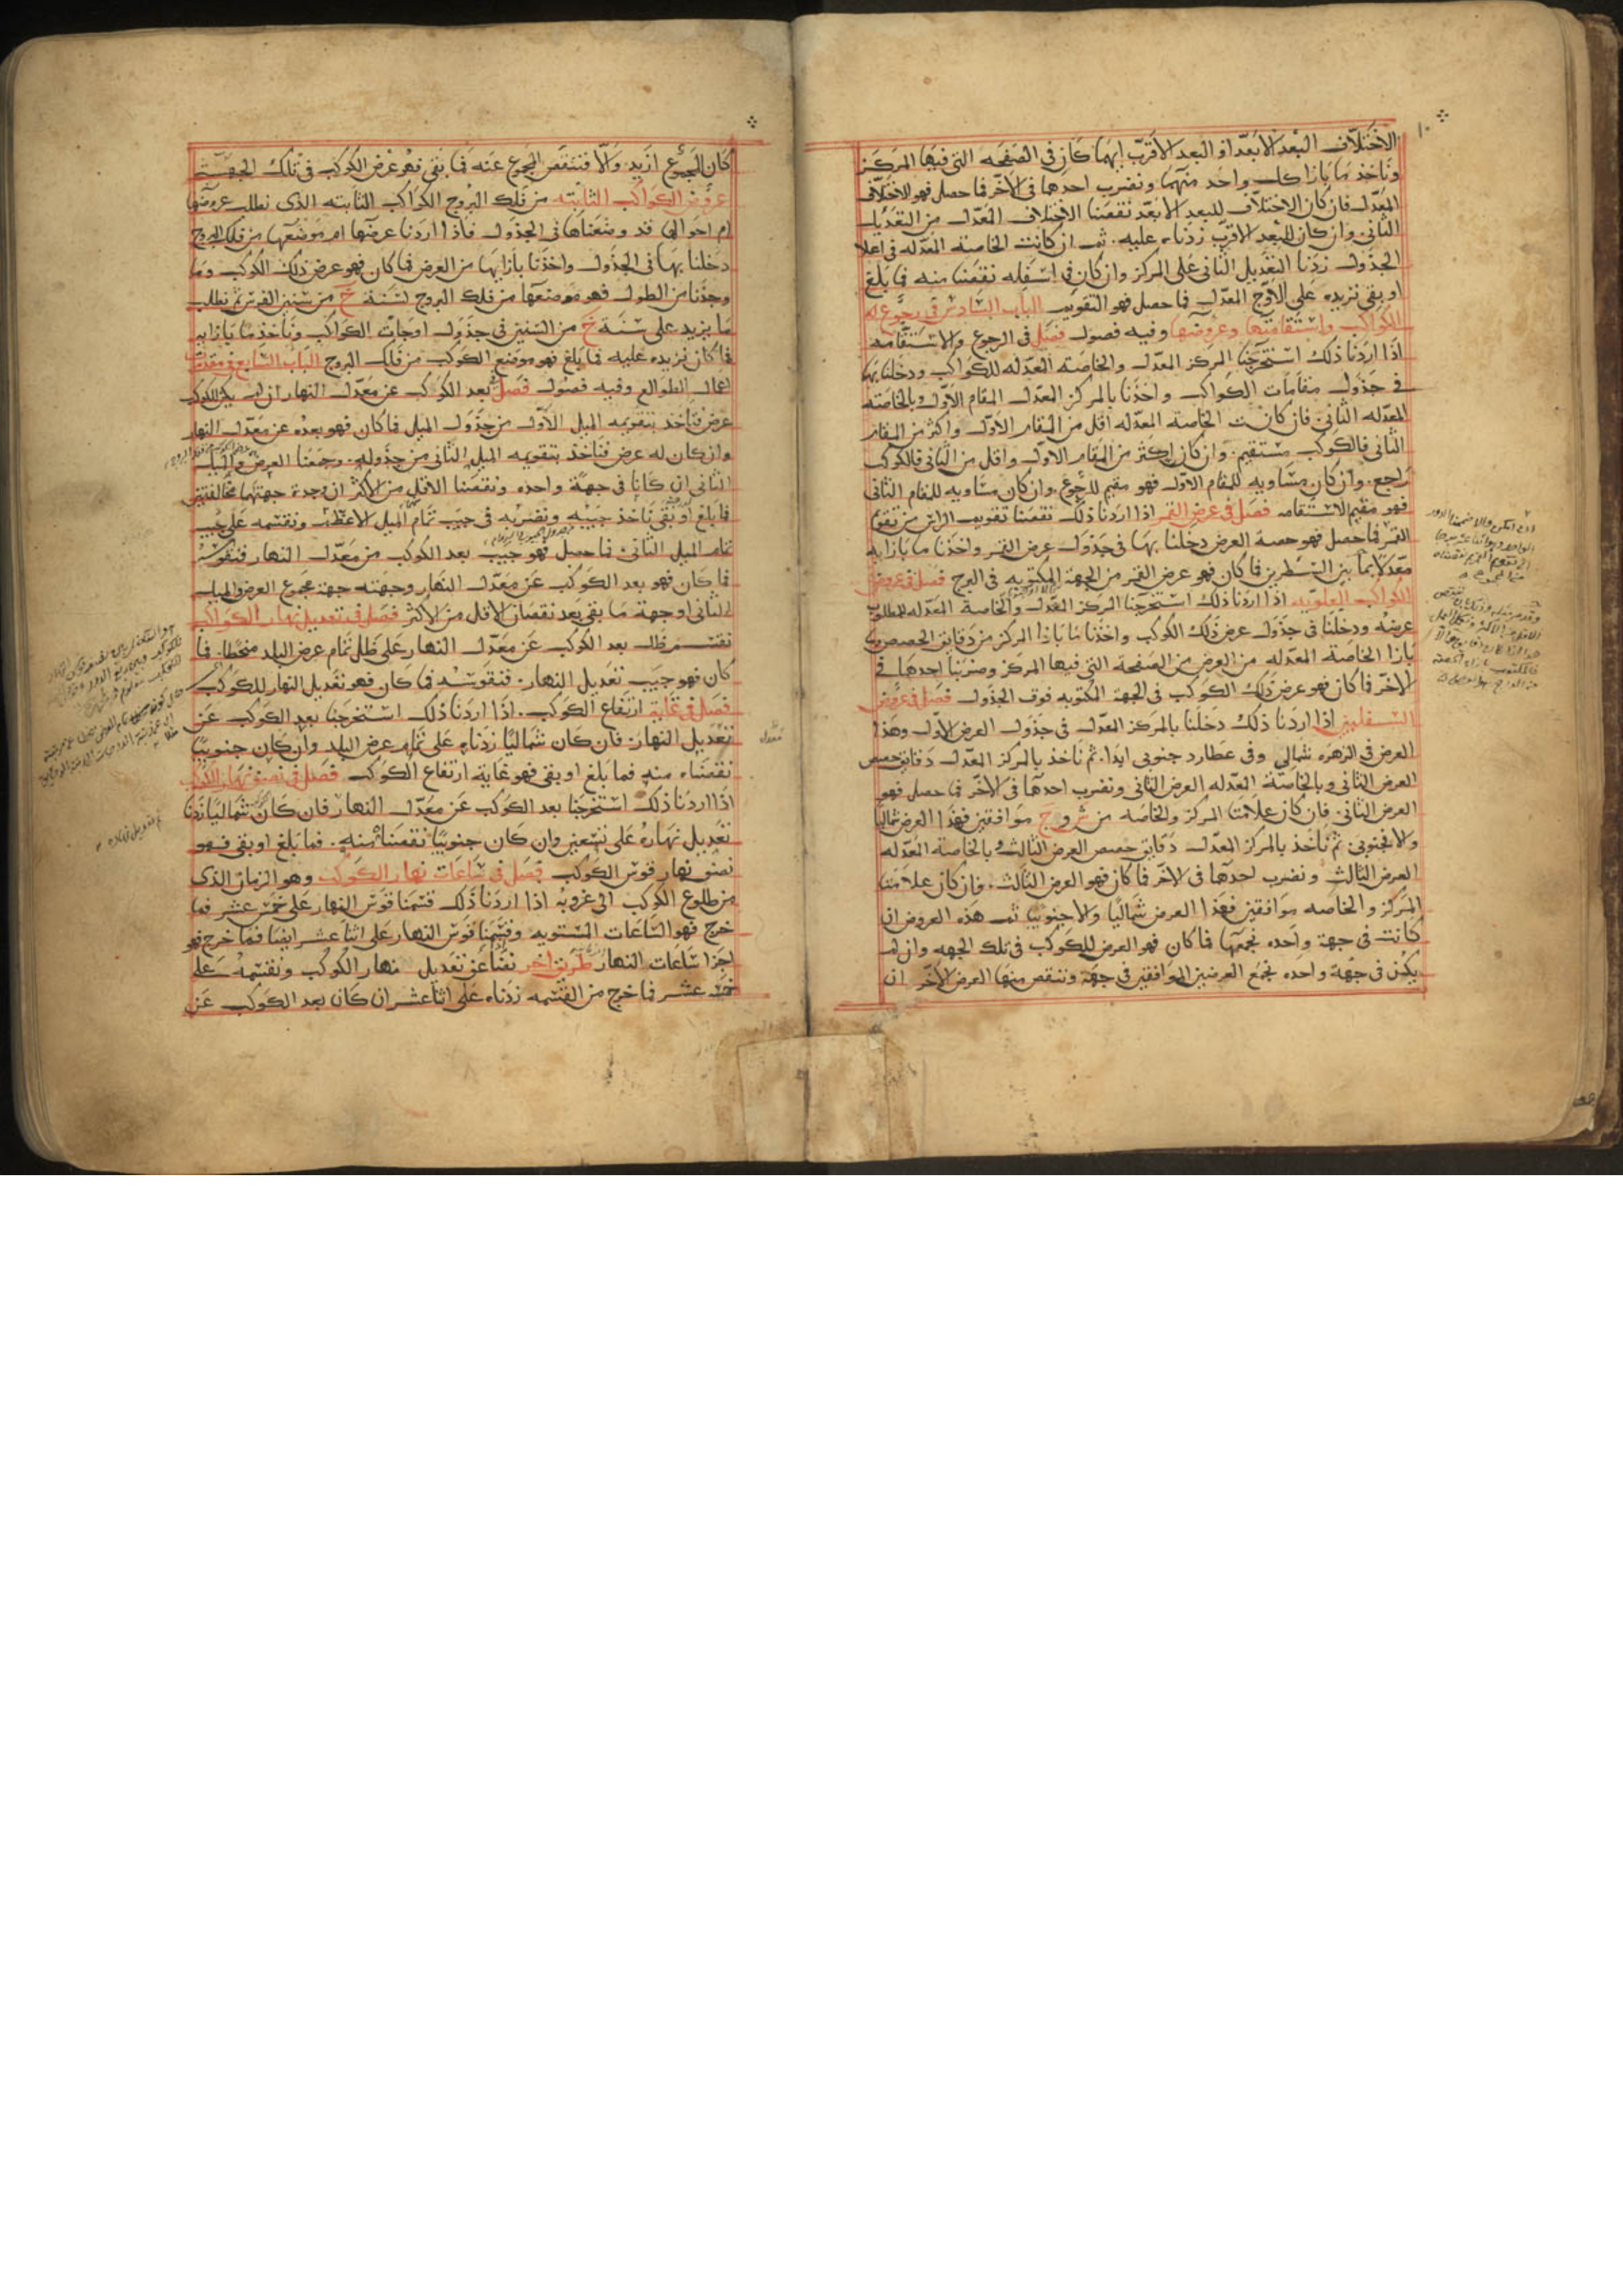 الاختلاف البعد الابعد او البعد الاقرب ايهما كان فى الصفحه التى فيها المركز
وناخذ ما بازا كل واحد منهما ونضرب احدهما فى الاخر فما حصل فهو الاختلاف
المعدل فان كان الاختلاف للبعد الابعد نقصنا الاختلاف المعدل من التعديل
الثانى وان كان للبعد الاقرب زدناه عليه ثم ان كانت الخاصه المعدله فى اعلا
الجدول زدنا التعديل الثانى على المركز وان كان فى اسفله نقصنا منه فما بلغ
او بقى نزيده على الاوج المعدل فما حصل فهو التقويم الباب السادس فى رجوع
الكواكب واستقامتها وعروضها وفيه فصول فصل فى الرجوع والاستقامه
اذا اردنا ذلك استخرجنا المركز المعدل والخاصه المعدله للكواكب ودخلنا بهما
فى جدول مقامات الكواكب واخذنا بالمركز المعدل المقام الاول وبالخاصه
المعدله الثانى فان كانت الخاصه المعدله اقل من المقام الاول واكثر من المقام
الثانى فالكوكب مستقيم وان كان اكثر من المقام الاول واقل من الثانى فالكوكب
راجع وان كان مساويه للمقام الاول فهو مقيم للرجوع وان كان مساويه للمقام الثانى
فهو مقيم للاستقامه فصل فى عرض القمر اذا اردنا ذلك نقصنا تقويم الراس من تقويم
القمر فما حصل فهو حصه العرض دخلنا بها فى جدول عرض القمر واخذنا ما بازايه
معدلا بما بين السطرين فما كان فهو عرض القمر من الجهة المكتوبه فى البرج فصل فى عروض
الكواكب العلويه اذا اردنا ذلك استخرجنا المركز المعدل والخاصه المعدله للمطلوب
عرضه ودخلنا فى جدول عرض ذلك الكوكب واخذنا ما بازا المركز من دقايق الحصص
بازا الخاصه المعدله من العرض من الصفحة التى فيها المركز وضربنا احدهما فى
الاخر فما كان فهو عرض ذلك الكوكب فى الجهة المكتوبه فوق الجدول فصل فى عروض
السفليين اذا اردنا ذلك دخلنا بالمركز المعدل فى جدول العرض الاول وهذا
العرض فى الزهره شمالى وفى عطارد جنوبى ابدا ثم ناخذ بالمركز المعدل دقايق حصص
العرض الثانى وبالخاصة المعدله العرض الثانى ونضرب احدهما فى الاخر فما حصل فهو
العرض الثانى فان كان علامتا المركز والخاصه من موافقين فهذا العرض شماليا
والا فجنوبى ثم ناخذ بالمركز المعدل دقايق حصص العرض الثالث وبالخاصة المعدله
العرض الثالث ونضرب احدهما فى الاخر فما كان فهو العرض الثالث فان كان علامتا
المركز والخاصه موافقين فهذا العرض شماليا والا جنوبيا ثم هذه العروض ان
كانت فى جهة واحده نجمعها فما كان فهو العرض للكوكب فى تلك الجهه وان لم
يكن فى جهة واحده نجمع العرضين الموافقين فى جهة وننقص منها العرض الاخر ان
كان المجموع ازيد والا فننقص المجموع عنه فما بقى فهو عرض الكوكب فى تلك الجهة
عروض الكواكب الثابته من فلك البروج الكواكب الثابته الذى نطلب عروضها
ام احوالها قد وضعناها فى الجدول فاذا اردنا عرضها ام موضعها من فلك البروج
دخلنا بها فى الجدول واخذنا بازايها من العرض فما كان فهو عرض ذلك الكوكب وما
وجدنا من الطول فهو موضعها من فلك البروج لسنة من سنين الفرس ثم نطلب
ما يزيد على سنة من السنين فى جدول اوجات الكواكب وناخذ ما بازايه
فما كان نزيده عليه فما بلغ فهو موضع الكوكب من فلك البروج الباب السابع فى مقدمة
اعمال الطوالع وفيه فصول فصل بعد الكوكب عن معدل النهار ان لم يكن للكوكب
عرض فناخذ بتقويمه الميل الاول من جدول الميل فما كان فهو بعده عن معدل النهار
وان كان له عرض فناخذ بتقويمه الميل الثانى من جدوله وجمعنا العرض والميل
الثانى ان كانا فى جهة واحده ونقصنا الاقل من الاكثر ان وجدنا جهتهما مخالفتين
فما بلغ او بقى ناخذ جيبه ونضربه فى جيب تمام الميل الاعظم ونقسمه على جيب
تمام الميل الثانى فما حصل فهو جيب بعد الكوكب من معدل النهار فنقوسه
فما كان فهو بعد الكوكب عن معدل النهار وجهته جهة مجموع العرض والميل
الثانى او جهة ما بقى بعد نقصان الاقل من الاكثر فصل فى تعديل نهار الكواكب
نقسم ظل بعد الكوكب عن معدل النهار على ظل تمام عرض البلد منحطا فما
كان فهو جيب تعديل النهار فنقوسه فما كان فهو تعديل النهار للكوكب
فصل فى غاية ارتفاع الكوكب اذا اردنا ذلك استخرجنا بعد الكوكب عن
تعديل النهار فان كان شماليا زدناه على تمام عرض البلد وان كان جنوبيا
نقصناه منه فما بلغ او بقى فهو غاية ارتفاع الكوكب فصل فى نصف نهار الكوكب
اذا اردنا ذلك استخرجنا بعد الكوكب عن معدل النهار فان كان شماليا زدنا
تعديل نهاره على تسعين وان كان جنوبيا نقصناه منه فما بلغ او بقى فهو
نصف نهار قوس الكوكب فصل فى ساعات نهار الكوكب وهو الزمان الذى
من طلوع الكوكب الى غروبه اذا اردنا ذلك قسمنا قوس النهار على خمس عشر فما
خرج فهو الساعات المستويه وقسمنا قوس النهار على اثنا عشر ايضا فما خرج فهو
اجزا ساعات النهار طريق اخر تعديل نهار الكوكب ونقسمه على
خمسة عشر فما خرج من القسمه زدناه على اثنا عشر ان كان بعد الكوكب عن
معدل